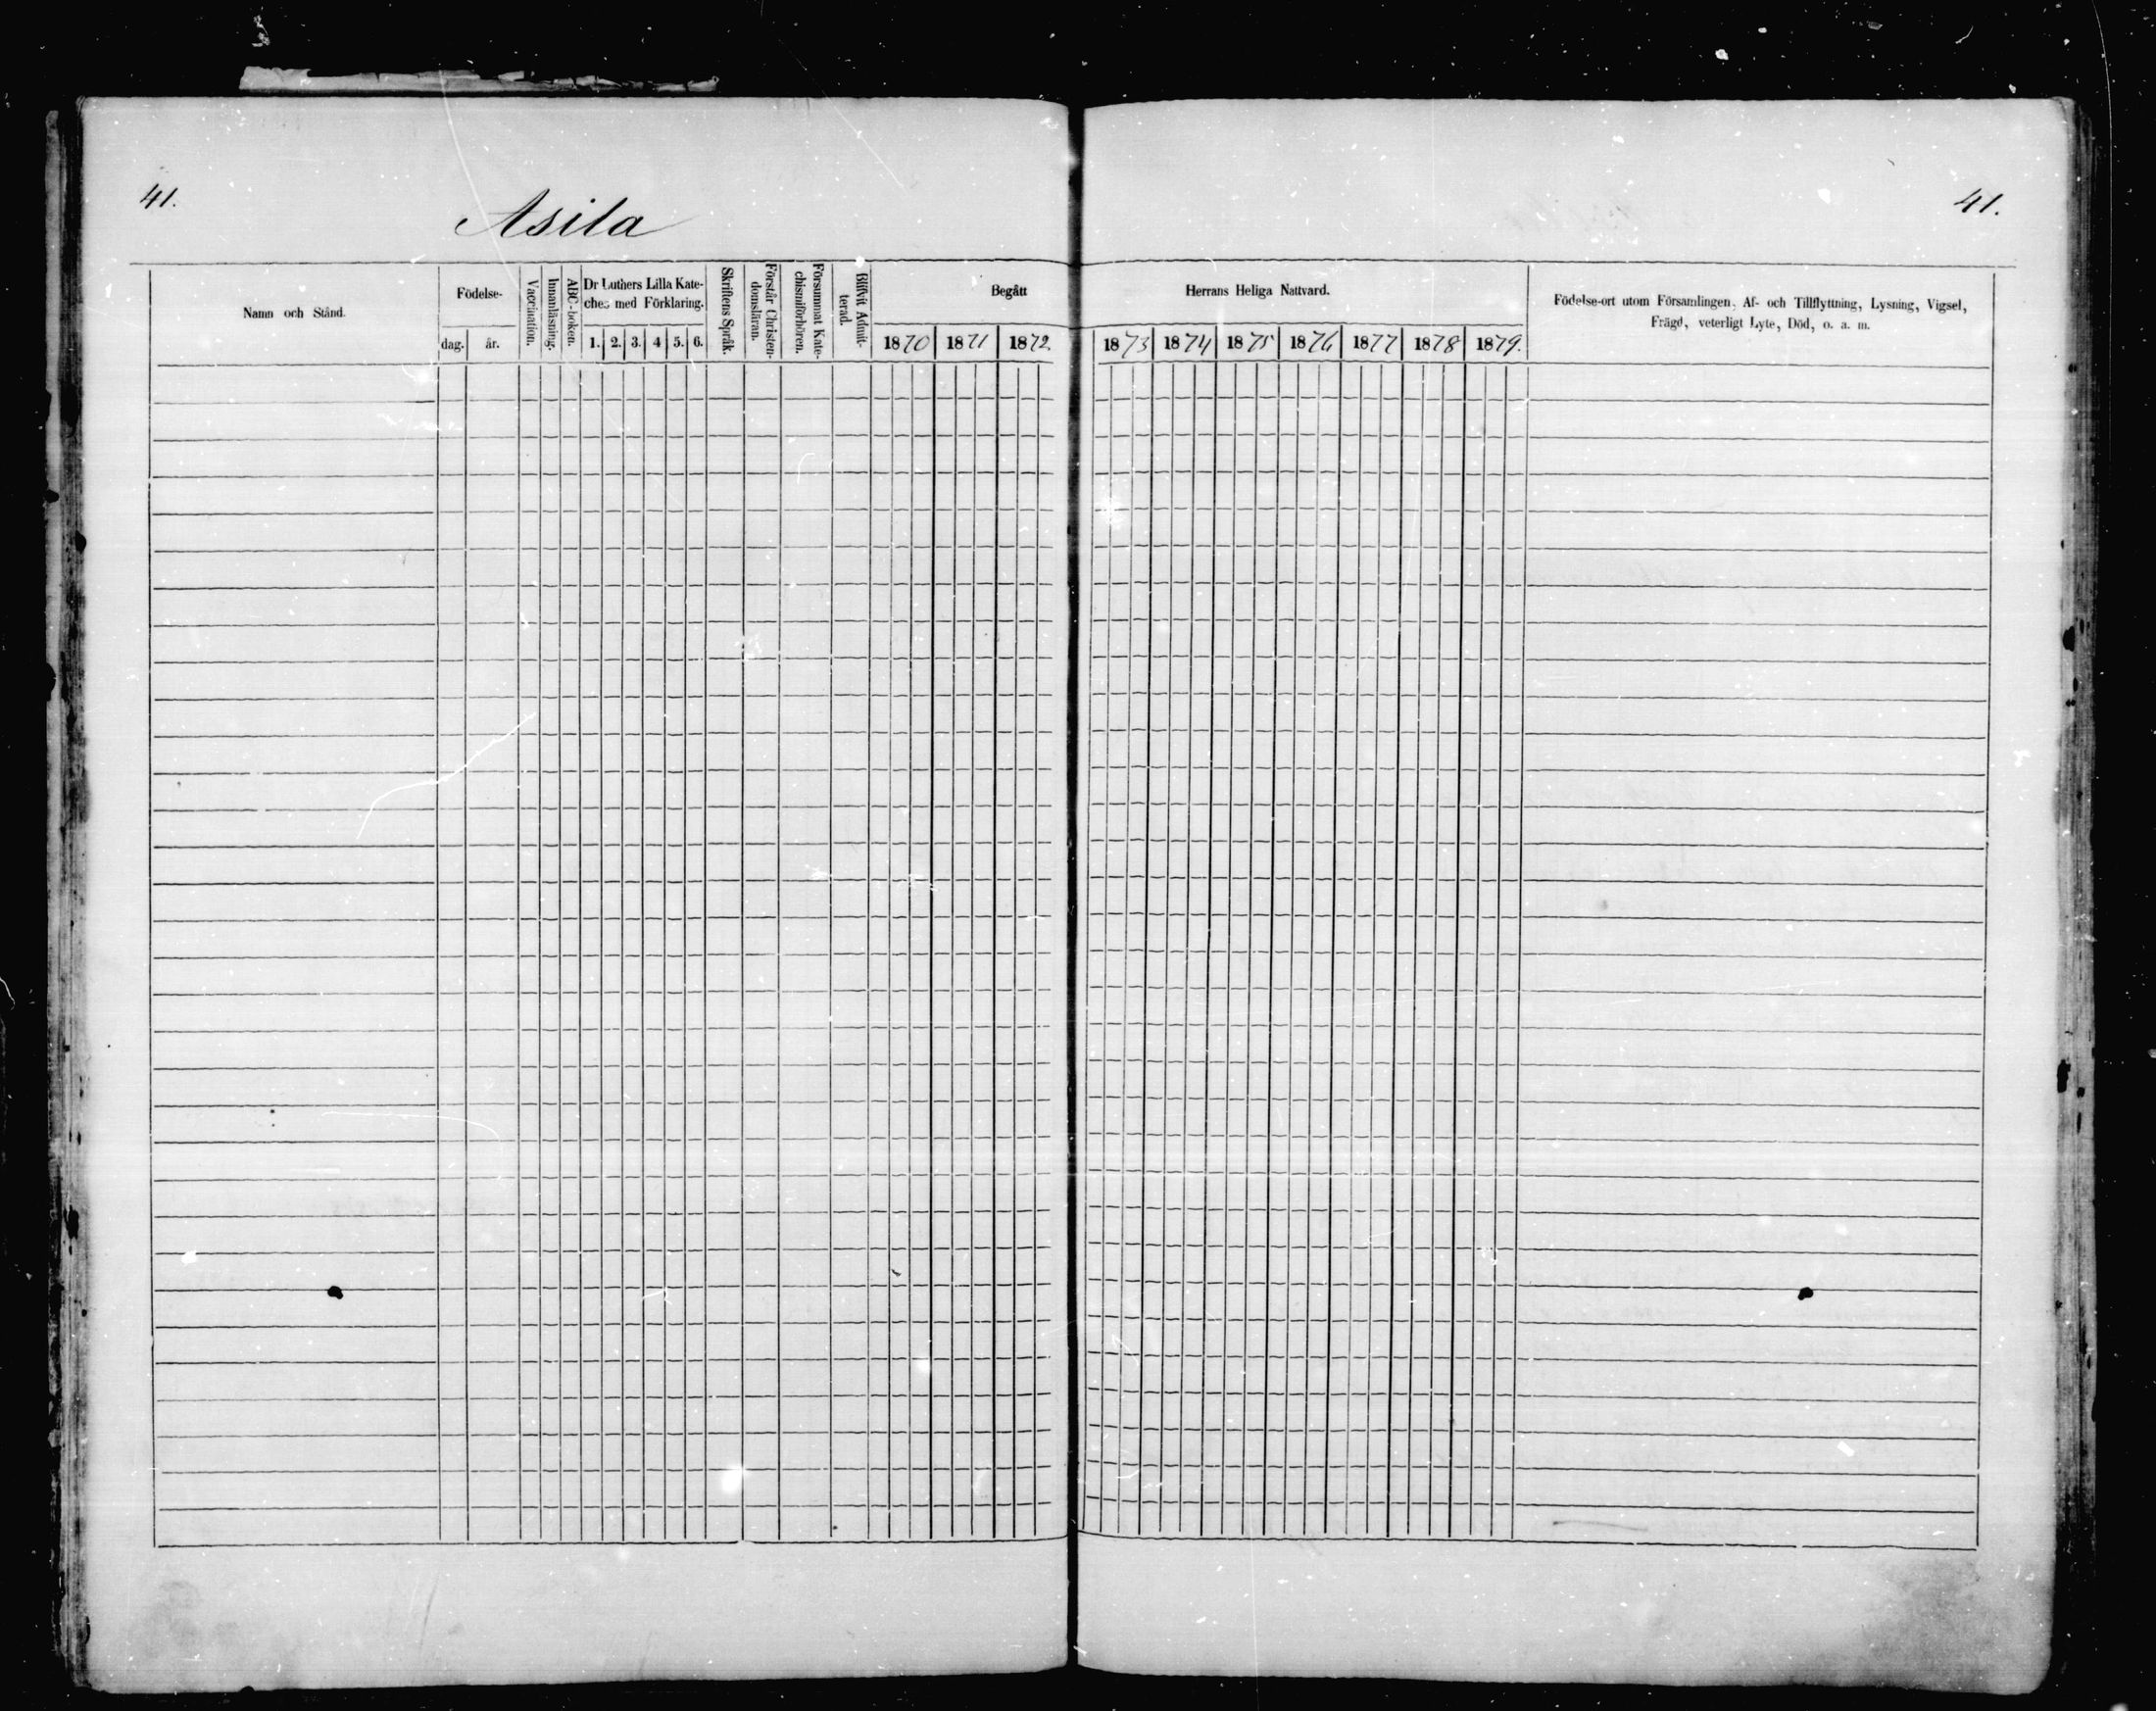 41.
Asila
41.
Namn och Stånd.
Födelse-
dag.
år.
Vaccination.
Innanläsning.
ABC-boken.
Dr Luthers Lilla Kate-
ches med Förklaring.
1. 2. 3. 4 5. 6.
Skriftens Språk.
Förstår Christen-
domsläran.
Försummat Kate-
chismiförhören.
Blifvit Admit-
terad.
Begått
1870 1871 1872.
Herrans Heliga Nattvard.
1873 1874 1875 1876 1877 1878 1879.
Födelse-ort utom Församlingen, Af- och Tillflyttning, Lysning, Vigsel,
Frägd, veterligt Lyte, Död, o. a. m.